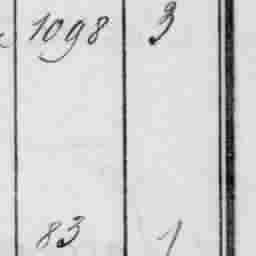 1098 3
83 1